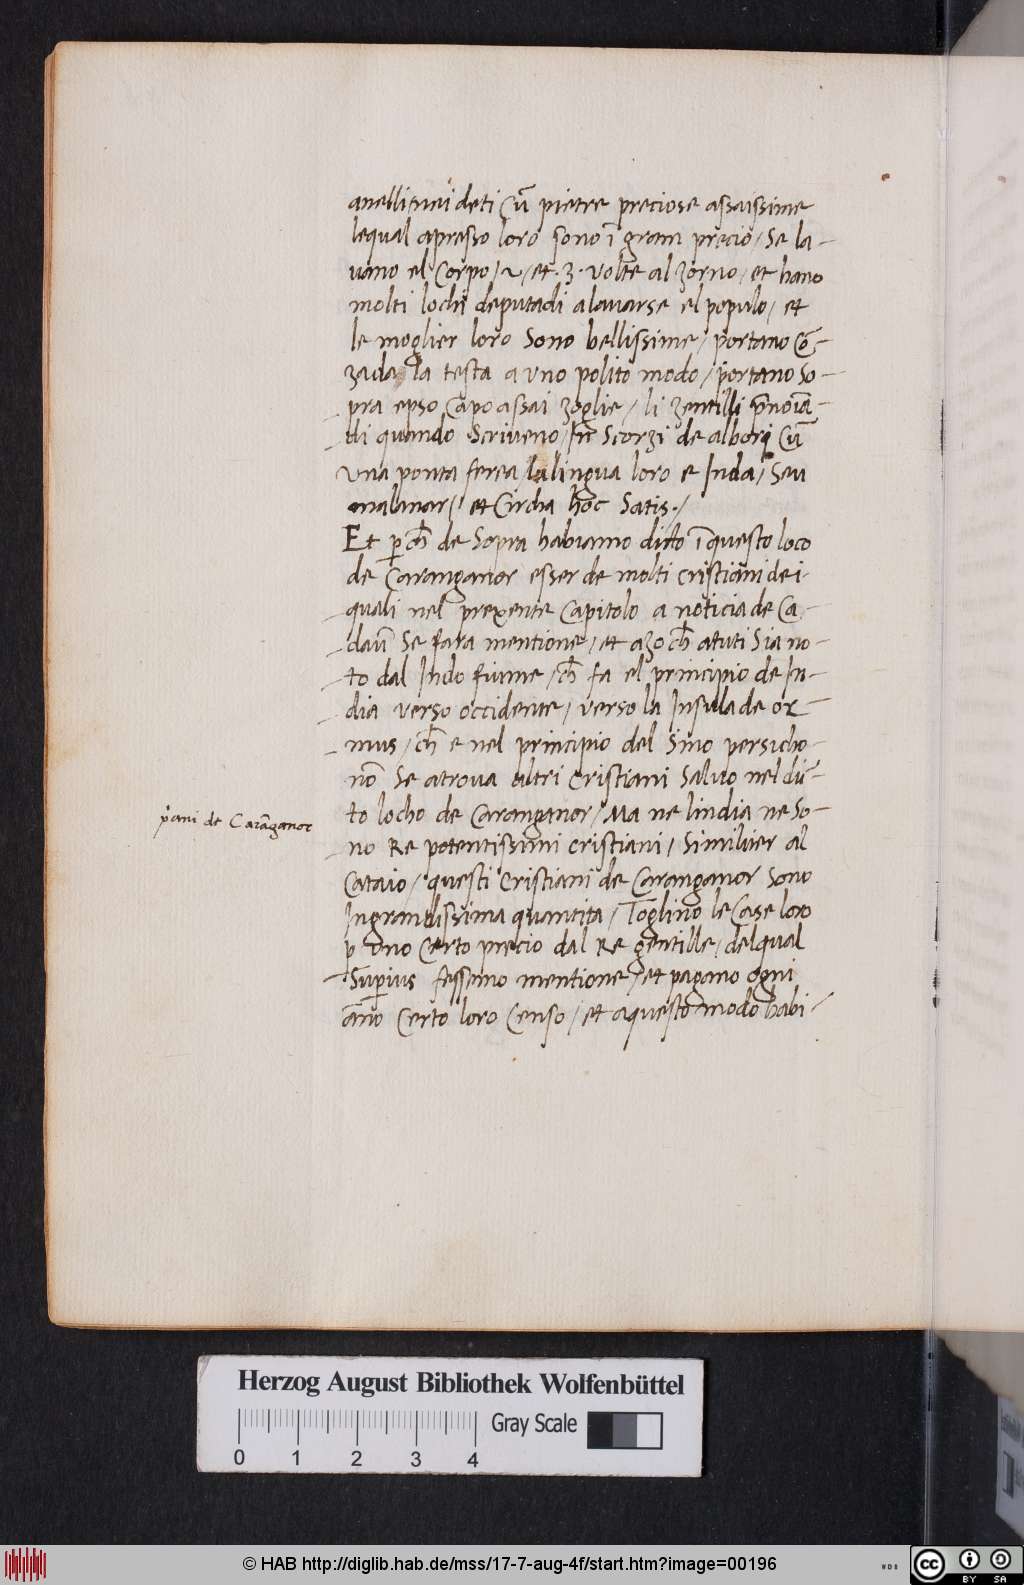 anelli nui deti Cū pietre preciose assaissime
lequal apresso loro sono ī gram precio / Se la-
uano el Corpo / 2 / et · 3 · volte al Zorno / et hano
molti lochi deputadi alauarse el populo / et
le moglier loro Sono bellissime / portano cō-
zada la testa a vno polito modo / portano So-
pra epso Capo assai zoglie / li zentilli p̄noīa-
di quando Scriueno / In Scorzi de albori Cū
vna ponta ferea / la lingua loro e Inda / Seu
malauar / et Circha hoc Satis . /
Et p ch̄ de Sopra habiamo dicto ī questo loco
de Caranganor esser de molti cristiani de i
quali nel prexente Capitolo a noticia de Ca-
daū Se fara mentione / et azo ch̄ a tuti Sia no-
to dal Indo fiume / ch̄ fa el principio de In-
dia verso occidente / verso la Insula de or-
mus / ch̄ e nel principio del Sino persicho
nō Se atroua altri Cristiani Saluo nel dū-
to locho de Caranganor / Ma ne lindia ne So-
no Re potentissimi cristiani / Similiter al
Cataio / questi Cristiani de Caranganor Sono
In grandissima quantita / Toglino le Case loro
p vno Certo precio dal Re gentille / del qual
Superius fessemo mentione / et pagano ogni
āno Certo loro Censo / et a questo modo habi-
x̄pani de Carāganor
Herzog August Bibliothek Wolfenbüttel
Gray Scale
0 1 2 3 4
© HAB http://diglib.hab.de/mss/17-7-aug-4f/start.htm?image=00196
WDB
cc BY SA